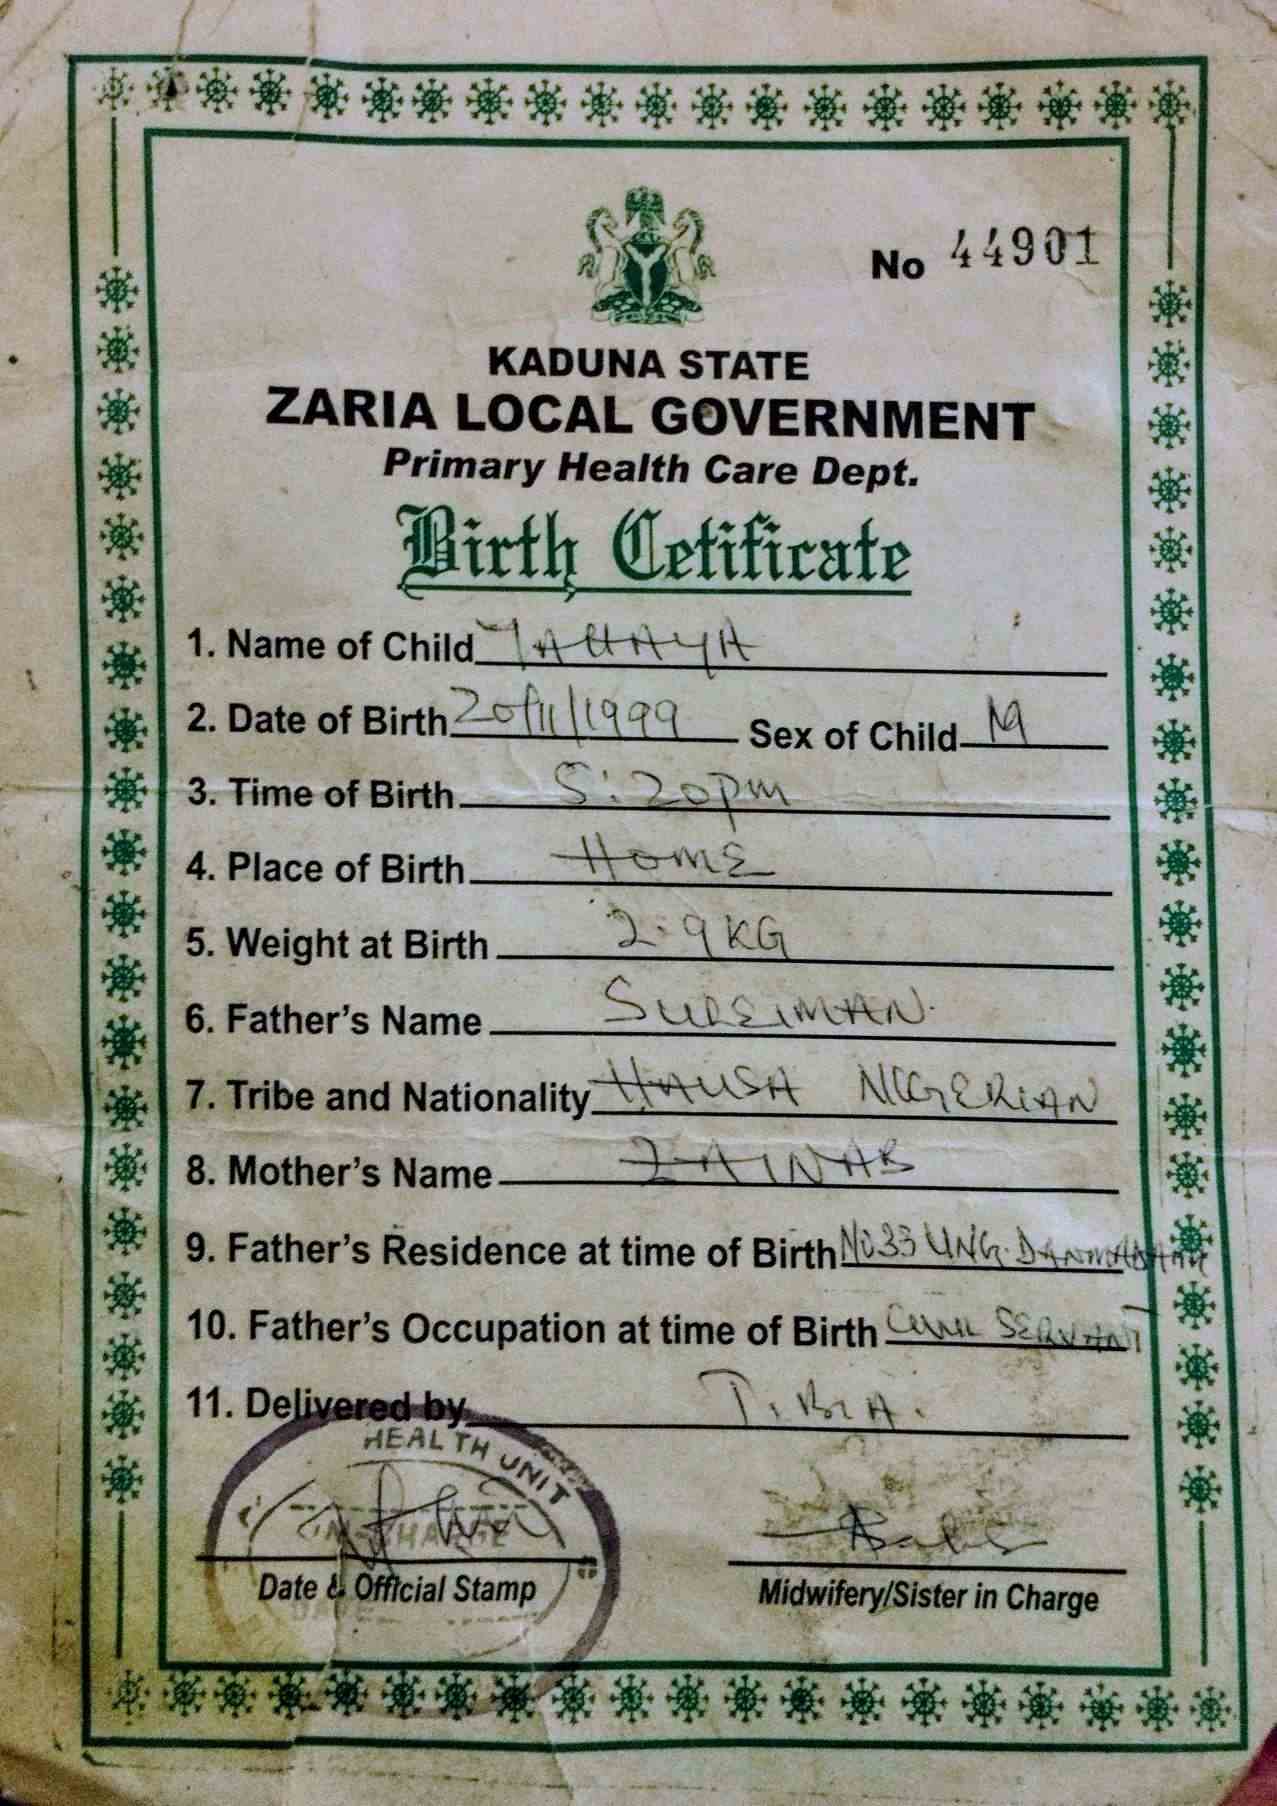 No 44901
KADUNA STATE
ZARIA LOCAL GOVERNMENT
Primary Health Care Dept.
Birth Cetificate
1. Name of Child YAHAYA
2. Date of Birth 20/11/1999 Sex of Child M
3. Time of Birth 5:20pm
4. Place of Birth HOME
5. Weight at Birth 2.9KG
6. Father's Name SULEIMAN.
7. Tribe and Nationality HAUSA NIGERIAN
8. Mother's Name ZAINAB
9. Father's Residence at time of Birth No33 UNG. DANMADAMI
10. Father's Occupation at time of Birth CIVIL SERVANT
11. Delivered by T.B.A.
HEALTH UNIT
IN-CHARGE
Date & Official Stamp
DATE
Midwifery/Sister in Charge